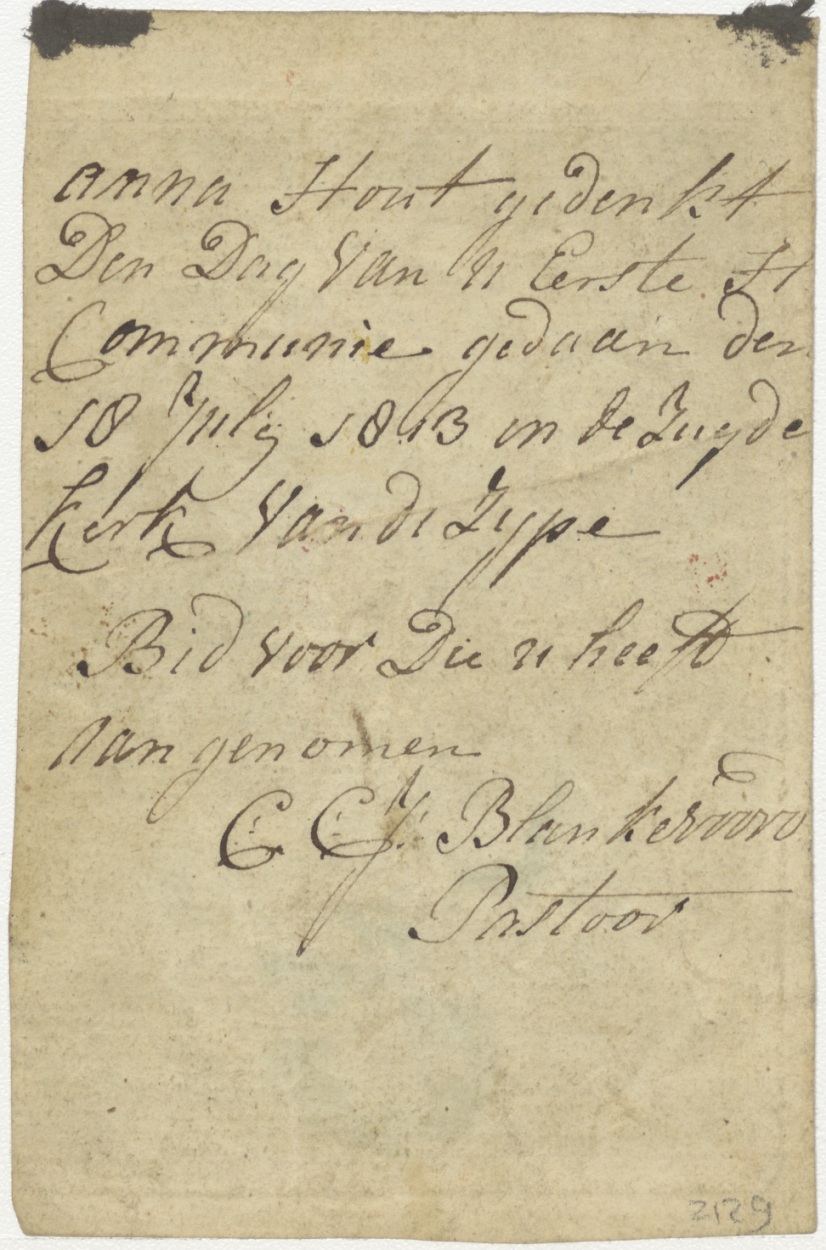 anna Hout gedenkt
Den Dag Van u Eerste H
Communie gedaan den
18 July 1813 in de Zuyde
kerk Van de Zype
Bid voor Die u heeft
aan genomen
C: C: J: Blankevoord
Pastoor
2129